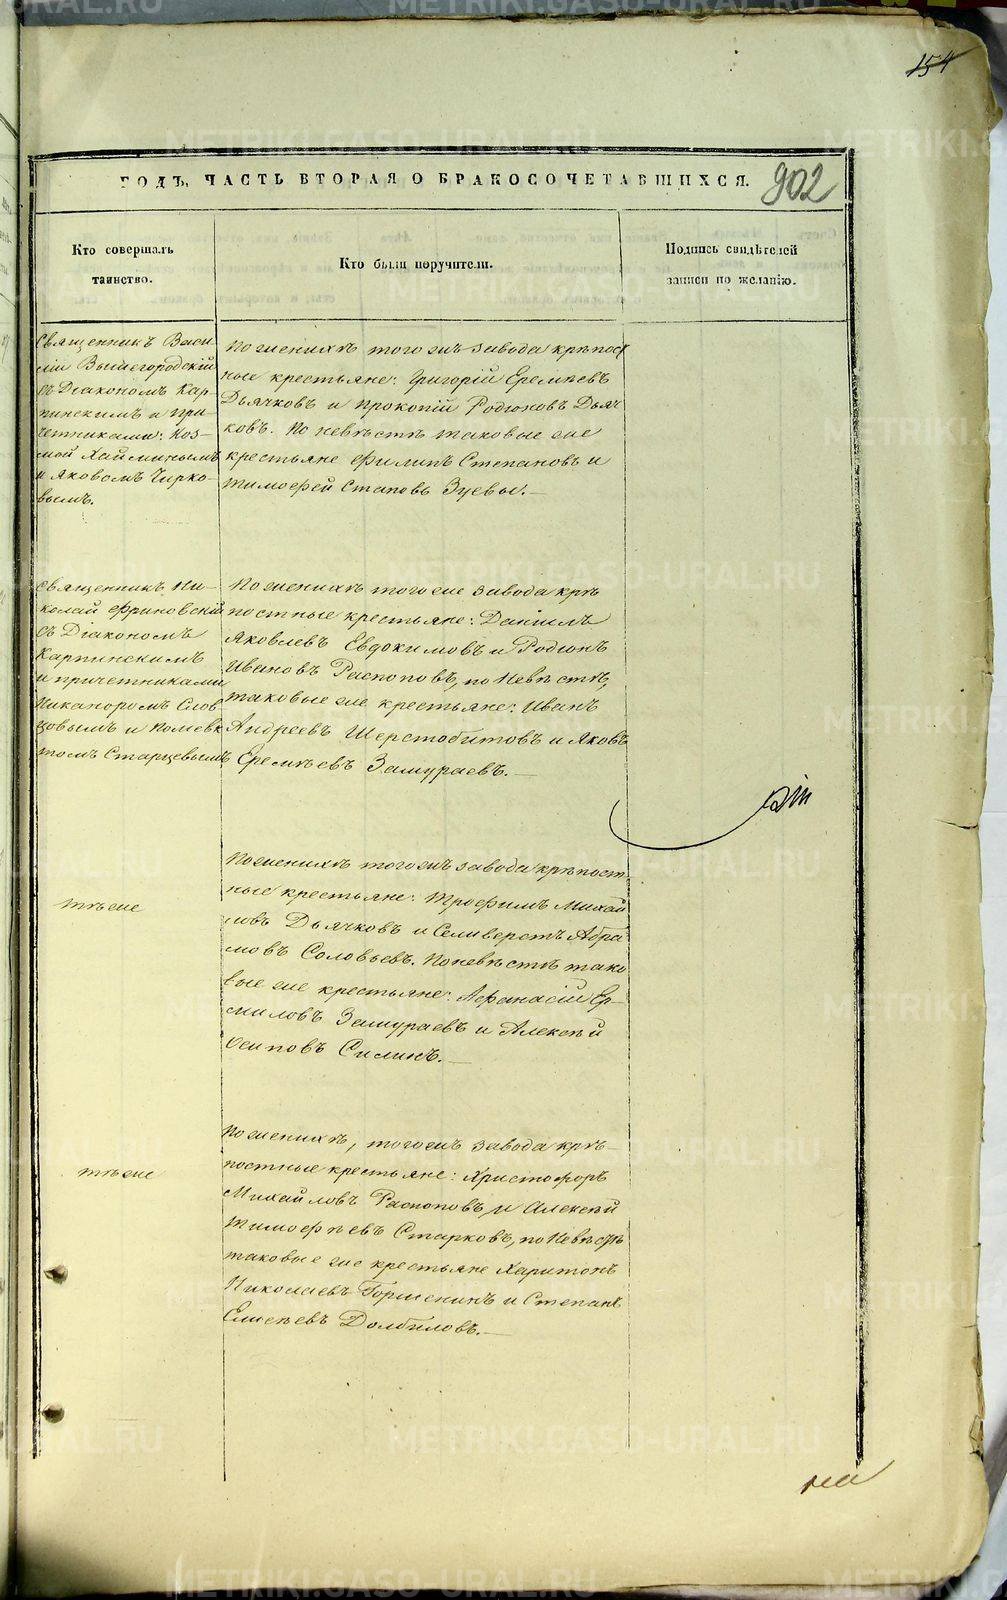 154
ГОДЪ, ЧАСТЬ ВТОРАЯ О БРАКОСОЧЕТАВШИХСЯ.
902
Кто совершалъ
таинство.
Кто были поручители.
Подпись свидѣтелей
записи по желанію.
Священникъ Васи-
лій Вышегородскій
съ Діакономъ Кар-
пинскимъ и при-
четниками: Коз-
мой Хайминымъ
и Яковомъ Чирко-
вымъ.
По женихѣ того жъ завода крѣпост
ные крестьяне: Григорій Еремѣевъ
Дьячковъ и Прокопій Родіоновъ Дьяч
ковъ. По невѣстѣ таковые же
крестьяне Филипъ Степановъ и
Тимофей Зуевы.—
Священникъ Ни-
колай
съ Діакономъ
Карпинскимъ
и причетниками
Никаноромъ Слов
цовымъ и
Старцевымъ
По женихѣ того же завода крѣ
постные крестьяне: Даніилъ
Яковлевъ Евдокимовъ и Родіонъ
Ивановъ Распоповъ, по Невѣстѣ,
таковые же крестьяне: Иванъ
Андреевъ Шерстобитовъ и Яковъ
Еремѣевъ Замураевъ.—
тѣже
По женихѣ того жъ завода крѣпост
ные крестьяне: Трофимъ Михай
ловъ Дьячковъ и Селиверстъ Абра
мовъ Соловьевъ. По невѣстѣ тако
вые же крестьяне: Афанасій Ер-
миловъ Замураевъ и Алексѣй
Осиповъ Силинъ.—
тѣже
По женихѣ, того жъ завода крѣ-
постные крестьяне: Христофоръ
Михайловъ Распоповъ и Алексѣй
Тимофѣевъ Старковъ, по Невѣстѣ
таковые же крестьяне Харитонъ
Николаевъ Горшенинъ и Степанъ
Елисѣевъ Долбиловъ.—
METRIKI.GASO-URAL.RU